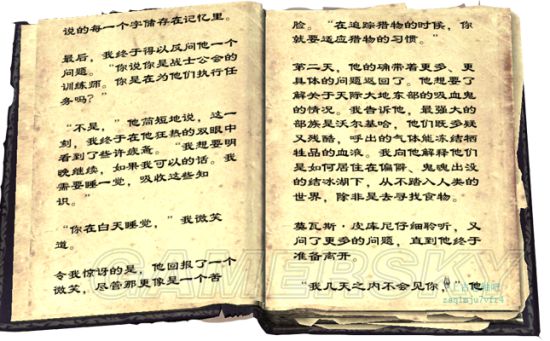 说的每一个字储存在记忆里。
最后，我终于得以反问他一个
问题。“你说你是战士公会的
训练师。你是在为他们执行任
务吗？”
“不是，”他简短地说，这一
刻，我终于在他狂热的双眼中
看到了些许疲斎。“我想要明
晚继续，如果我可以的话。我
需要睡一觉，吸收这些知
识。”
“你在白天睡觉，”我微笑
道。
令我惊讶的是，他回报了一个
微笑，尽管那更像是一个苦
脸。“在追踪猎物的时候，你
就要适应猎物的习惯。”
第二天，他的确带着更多、更
具体的问题返回了。他想要了
解关于天际大地东部的吸血鬼
的情况。我告诉他，最强大的
部族是沃尔基哈，他们既多疑
又残酷，呼出的气体能冻结牺
牲品的血液。我向他解释他们
是如何居住在偏僻、鬼魂出没
的结冰湖下，从不踏入人类的
世界，除非是去寻找食物。
莫瓦斯·皮库尼仔细聆听，又
问了更多的问题，直到他终于
准备离开。
“我几天之内不会见你，”他
GAMERSKY
zaq1mju7vfr4